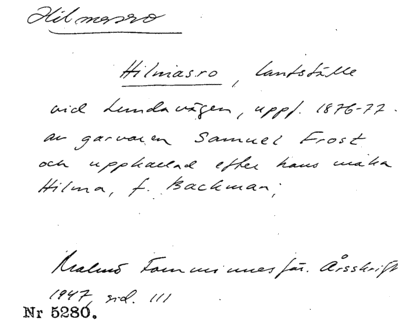 Hilmasro
Hilmasro, lantställe
vid Lundavägen, uppf. 1876-77
av garvaren Samuel Frost
och uppkallad efter hans maka
Hilma, f. Backman;
Malmö Fornminnesför. Årsskrift
1947, sid. 111
Nr 5280.